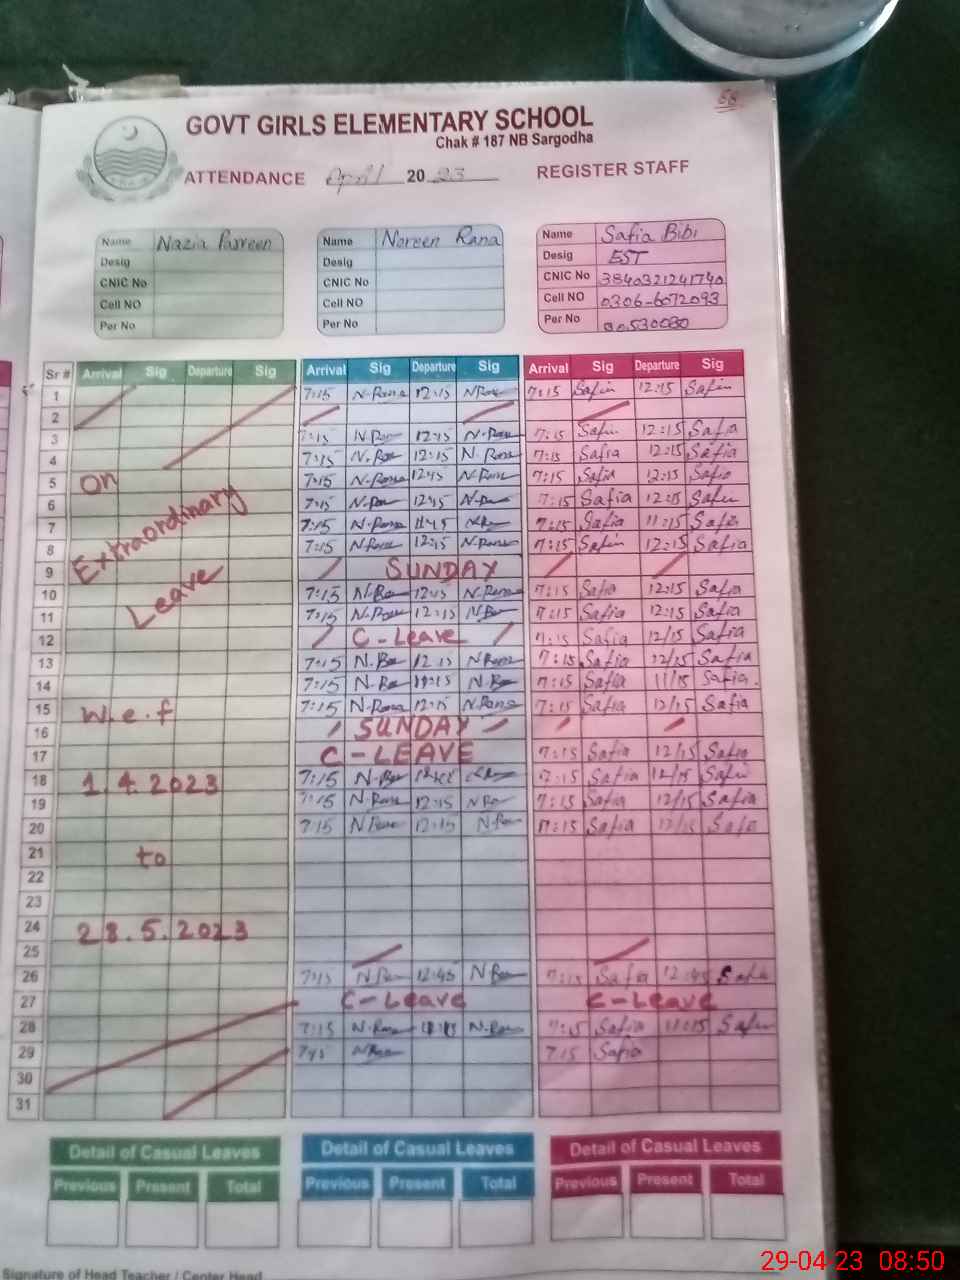 58
GOVT GIRLS ELEMENTARY SCHOOL
Chak # 187 NB Sargodha
ATTENDANCE April 2023 REGISTER STAFF
Name Nazia Parveen Name Noreen Rana Name Safia Bibi
Desig Desig Desig EST
CNIC No CNIC No CNIC No 3840321241740
Cell NO Cell NO Cell NO 0306-6072093
Per No Per No Per No
Sr # Arrival Sig Departure Sig Arrival Sig Departure Sig Arrival Sig Departure Sig
1 7:15 N-Rana 12:15 7:15 Safia 12:15 Safia
2
3 7:15 12:15 N-Rana 7:15 Safia 12:15 Safia
4 7:15 12:15 N. Rana 7:15 Safia 12:15 Safia
5 On 7:15 N-Rana 12:15 N-Rana 7:15 Safia 12:15 Safia
6 7:15 12:15 7:15 Safia 12:15 Safia
7 Extraordinary 7:15 N-Rana 7:15 Safia 11:15 Safia
8 7:15 N-Rana 12:15 N-Rana 7:15 Safia 12:15 Safia
9 SUNDAY
10 Leave 7:15 12:15 N-Rana 7:15 Safia 12:15 Safia
11 7:15 N-Rana 12:15 7:15 Safia 12:15 Safia
12 C-Leave 7:15 Safia 12/15 Safia
13 7:15 12:15 N Rana 7:15 Safia 12/15 Safia
14 7:15 7:15 Safia 11/15 Safia
15 W.e.f 7:15 N-Rana 12:15 N-Rana 7:15 Safia 12/15 Safia
16 SUNDAY
17 C-LEAVE 7:15 Safia 12/15 Safia
18 1.4.2023 7:15 7:15 Safia 12/15 Safia
19 7:15 N-Rana 12:15 7:15 Safia 12/15 Safia
20 7:15 N Rana 12:15 7:15 Safia 12/15 Safia
21 to
22
23
24 28.5.2023
25
26 7:15 12:45 7:15 Safia 12:45 Safia
27 C-Leave C-Leave
28 7:15 N-Rana N-Rana 7:15 Safia 11:15 Safia
29 N Rana 7:15 Safia
30
31
Detail of Casual Leaves Detail of Casual Leaves Detail of Casual Leaves
Previous Present Total Previous Present Total Previous Present Total
Signature of Head Teacher / Center Head
29-04-23 08:50